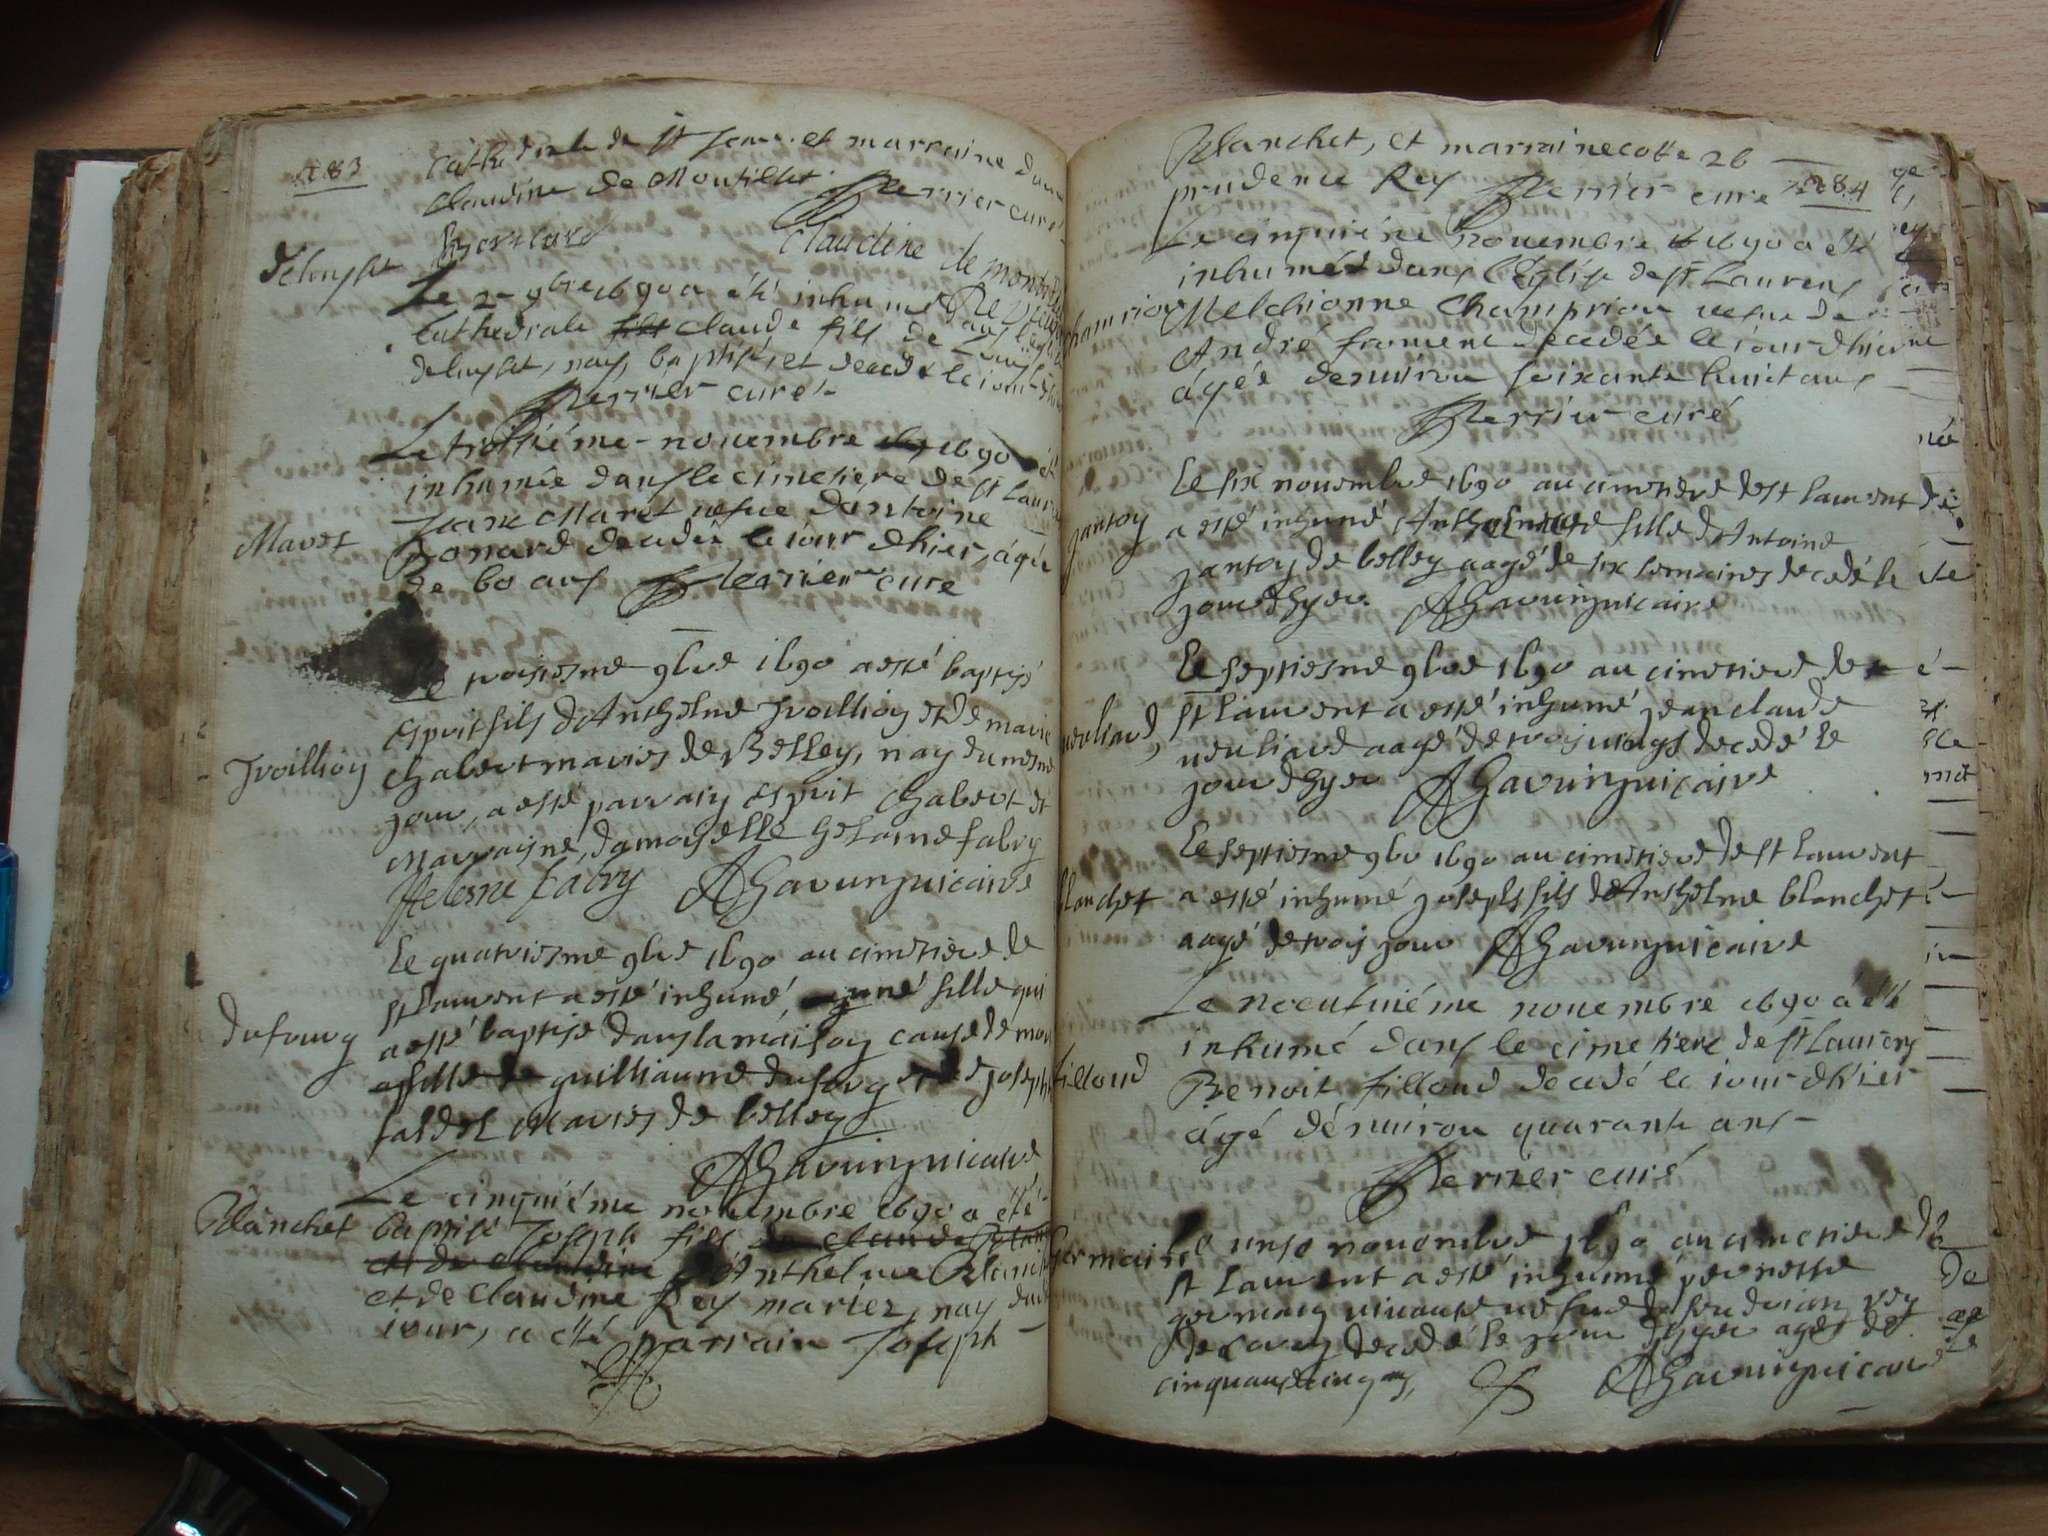 283
Cathedrale de st Jean. et marraine dame
Claudine de Montillet. Perrier curé
Claudine de
deluysset
Le 2e 9bre 1690 a été inhumé dans l'eglise
Cathedrale fils Claude fils de
deluysset, nay, baptisé, et decedé le iour
Perrier curé.
Le troisiéme novembre 1690 a été
inhumée dans le cimetiere de st Laurent
Maret
Jeane Maret vefue d'Antoine
Bonard decedée le iour d'hier, agée
de 60 ans Perrier curé
Le troisiesme 9bre 1690 a esté baptisé
esprit fils d'Anthelme Troillioy et de marie
Troillioy
chabert maries de Belley, nay du mesme
jour, a esté parrain esprit chabert et
Marrayne, damoyselle helesne fabry
Helesne fabry AGarin vicaire
Le quatriesme 9bre 1690 au cimetiere de
st laurent a esté inhumé, une fille qui
dufourg
a esté baptisé dans la maison cause de mort
fille de guilliaume dufourg et de
maries de belley
AGarin vicaire
Le cinquiéme novembre 1690 a été
Planchet
baptisé Joseph fils de claude
et de claudine d'Anthelme Planchet
et de Claudine Rey mariez, nay dudit
iour, a été parrain Joseph
Planchet, et marraine cotte 26
284
prudence Rey Perrier curé
Le cinquiéme novembre 1690 a été
inhumée dans l'Eglise de st Laurens
Melchionne Champrion vefue de
André froment decedée le iour d'hier
agée d'environ soixante huict ans
Perrier curé
Le six novembre 1690 au cimetiere de st laurent
jantoy
a esté inhumé Anthelmette fille d'Antoine
jantoy de belley aagé de six semaines decedé le
jour d'hyer. AGarin vicaire
Le septiesme 9bre 1690 au cimetiere de
st laurent a esté inhumé jean claude
veuliard,
veuliard aagé de trois decedé le
jour d'hyer AGarin vicaire
Le septiesme 9bre 1690 au cimetiere de st laurent
blanchet
a esté inhumé joseph fils d'Anthelme blanchet
aagé de trois jour AGarin vicaire
Le neufuiéme novembre 1690 a été
inhumé dans le cimetiere de st Laurens
filloud
Benoit filloud decedé le iour d'hier
agé d'environ quarante ans
Perrier curé
germain
Le unse novembre 1690 au cimetiere de
st laurent a esté inhumé pernette
germain vivante vefue de feu rey
decedé le jour d'hyer agée de
cinquante cinq ans, AGarin vicaire